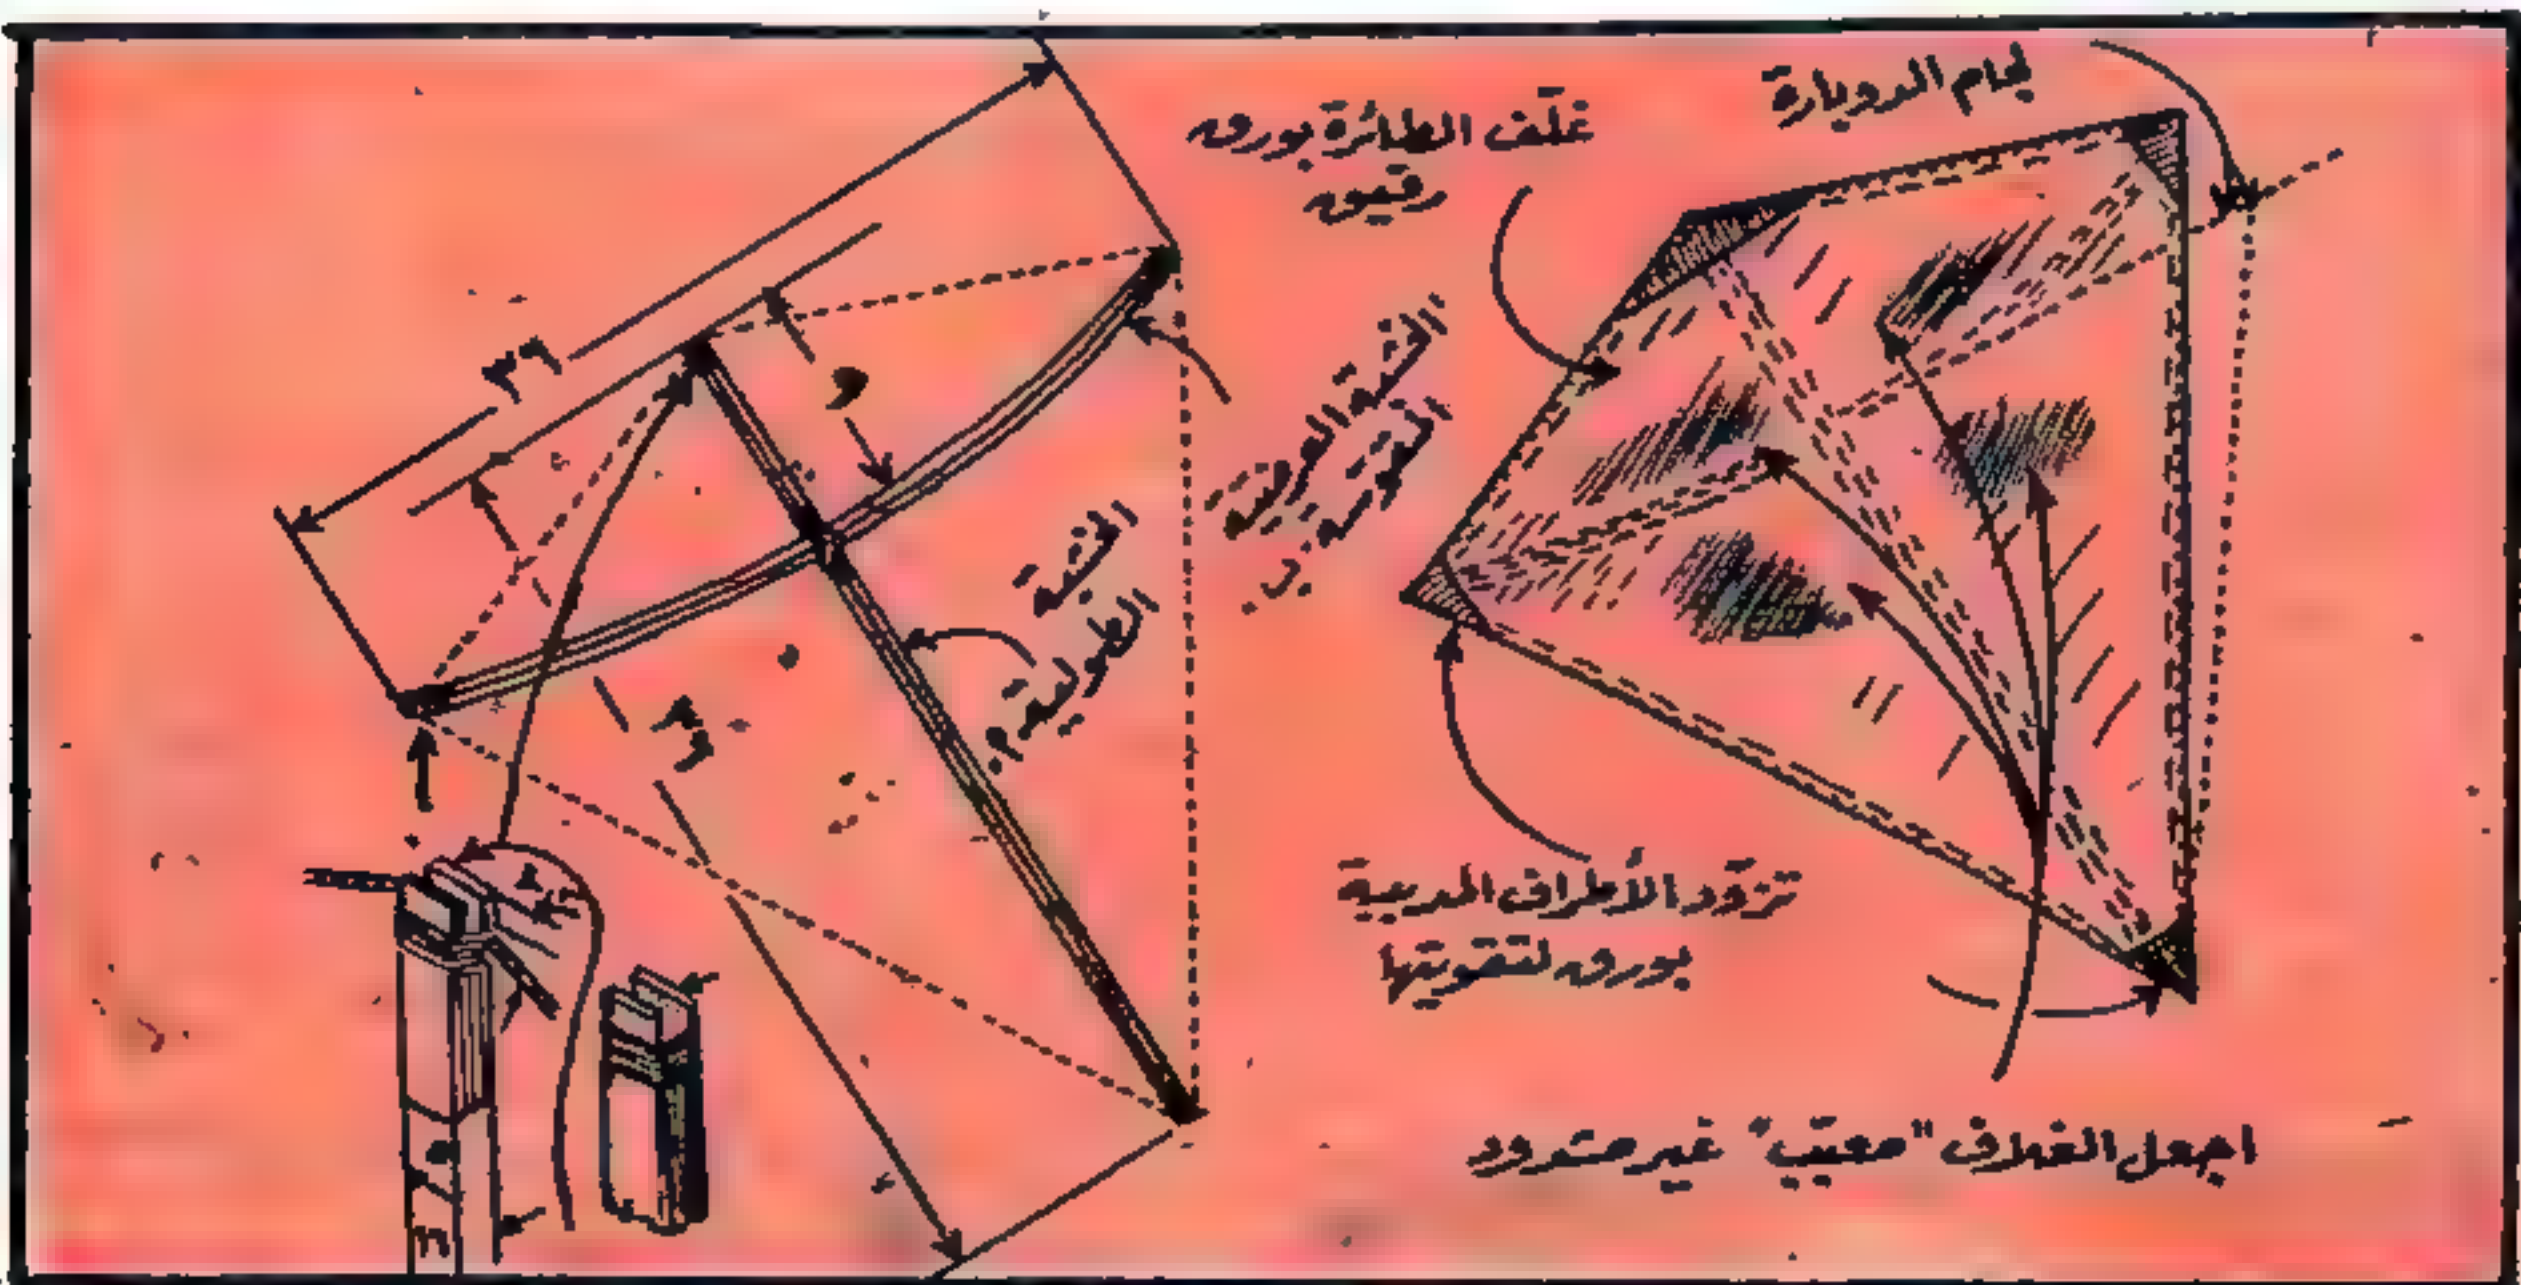 لجام الدوبارة
غلّف الطائرة بورق
رقيق
الخشبة العرضية
المقوسة ب
الخشبة
الطولية م
٣٦
٩
٣٦
تزوّد الأطراف المدببة
بورق لتقويتها
اجعل الغلاف "معبّب" غير مشدود